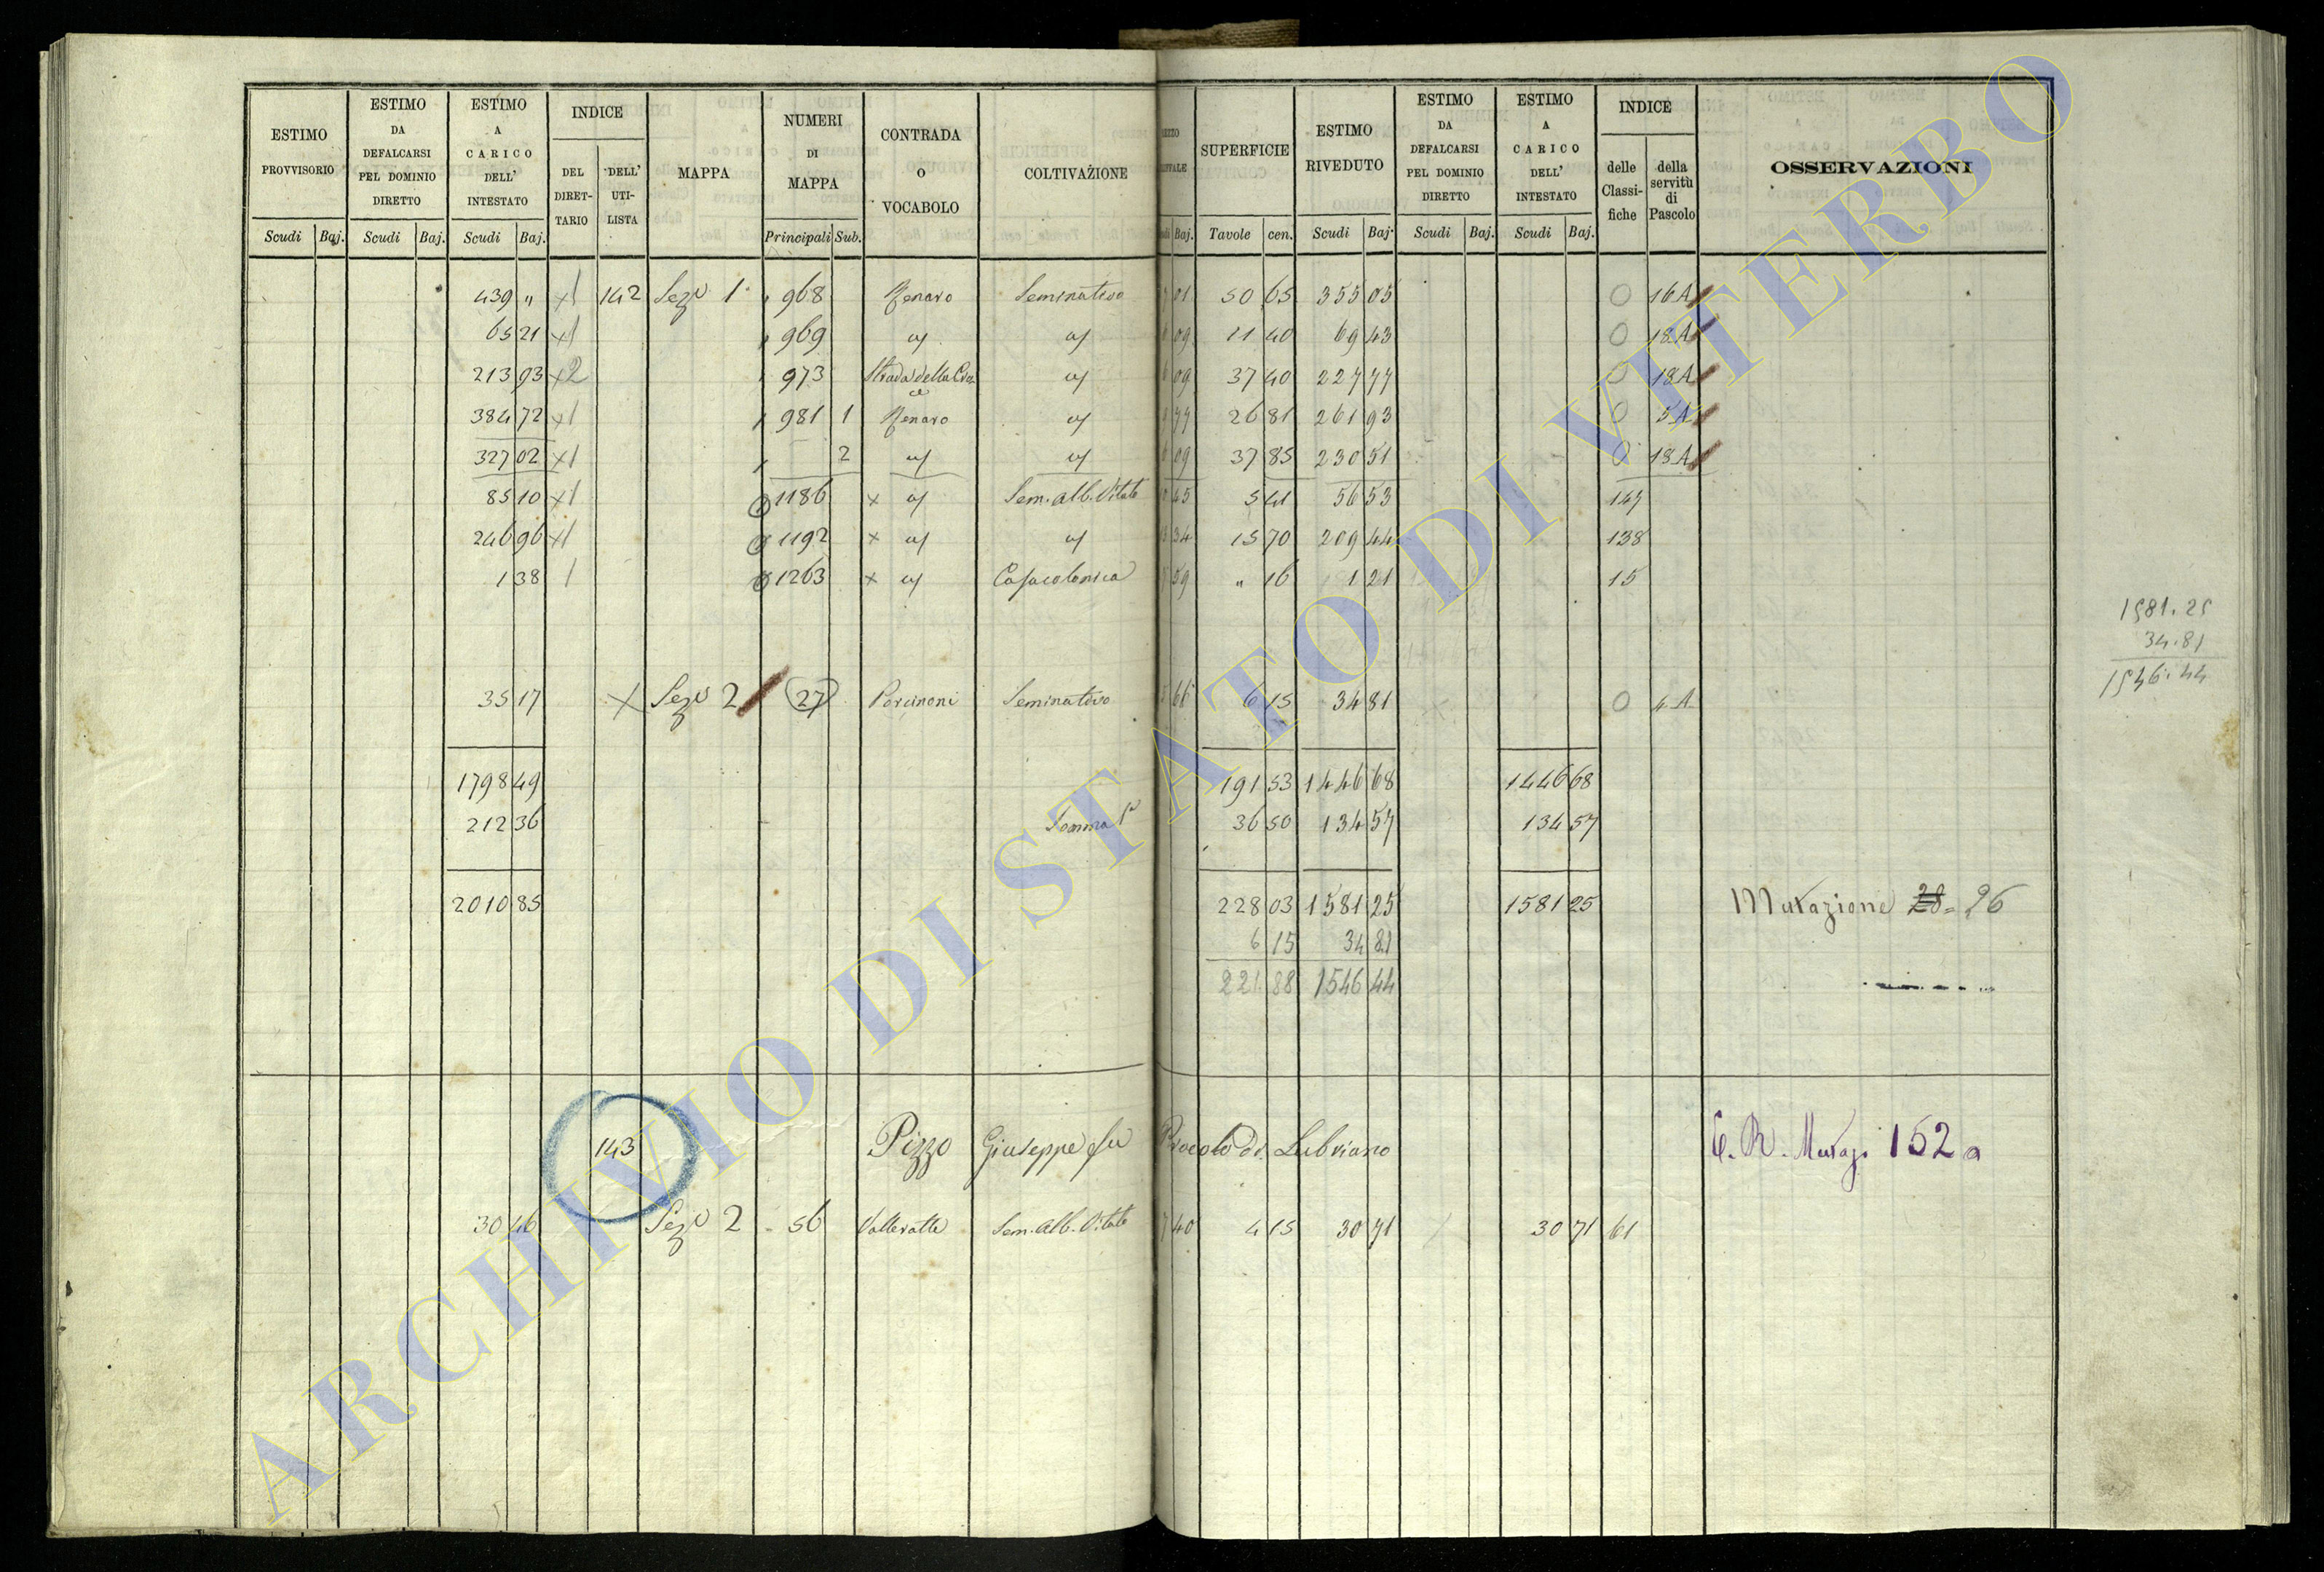 ESTIMO PROVVISORIO Scudi Baj.
ESTIMO DA DEFALCARSI PEL DOMINIO DIRETTO Scudi Baj.
ESTIMO A CARICO DELL' INTESTATO Scudi Baj.
INDICE DEL DIRET- TARIO DELL' UTI- LISTA
MAPPA
NUMERI DI MAPPA Principali Sub.
CONTRADA O VOCABOLO
COLTIVAZIONE
Baj.
SUPERFICIE Tavole cen.
ESTIMO RIVEDUTO Scudi Baj.
ESTIMO DA DEFALCARSI PEL DOMINIO DIRETTO Scudi Baj.
ESTIMO A CARICO DELL' INTESTATO Scudi Baj.
INDICE delle Classi- fiche della servitù di Pascolo
OSSERVAZIONI
439 " x1 142 Sez.e 1 968 Renaro Seminativo 01 50 65 355 05 0 16A
65 21 x1 969 " " 09 11 40 69 43 0 18A
213 93 x2 973 Strada della Croce " 09 37 40 227 77 0 18A
384 72 x1 981 1 Renaro " 77 26 81 261 93 0 5A
327 02 x1 2 " " 09 37 85 230 51 0 18A
85 10 x1 1186 x " Sem. alb. Vitato 45 5 41 56 53 147
246 96 x1 1192 x " " 34 15 70 209 44 138
1 38 1 1263 x " Casa colonica 59 " 16 1 21 15
1581.25
34.81
1546.44
35 17 x Sez.e 2 27 Porcinoni Seminativo 66 6 15 34 81 0 4A
1798 49 191 53 1446 68 1446 68
212 36 Somma 36 50 134 57 134 57
2010 85 228 03 1581 25 1581 25 Mutazione 28 = 26
6 15 34 81
221 88 1546 44
143 Pizzo Giuseppe fu Procolo di Lubriano C. R. Mutaz. 152 a
30 46 Sez.e 2 56 Vallevalle Sem. alb. Vitato 40 4 15 30 71 30 71 61
ARCHIVIO DI STATO DI VITERBO